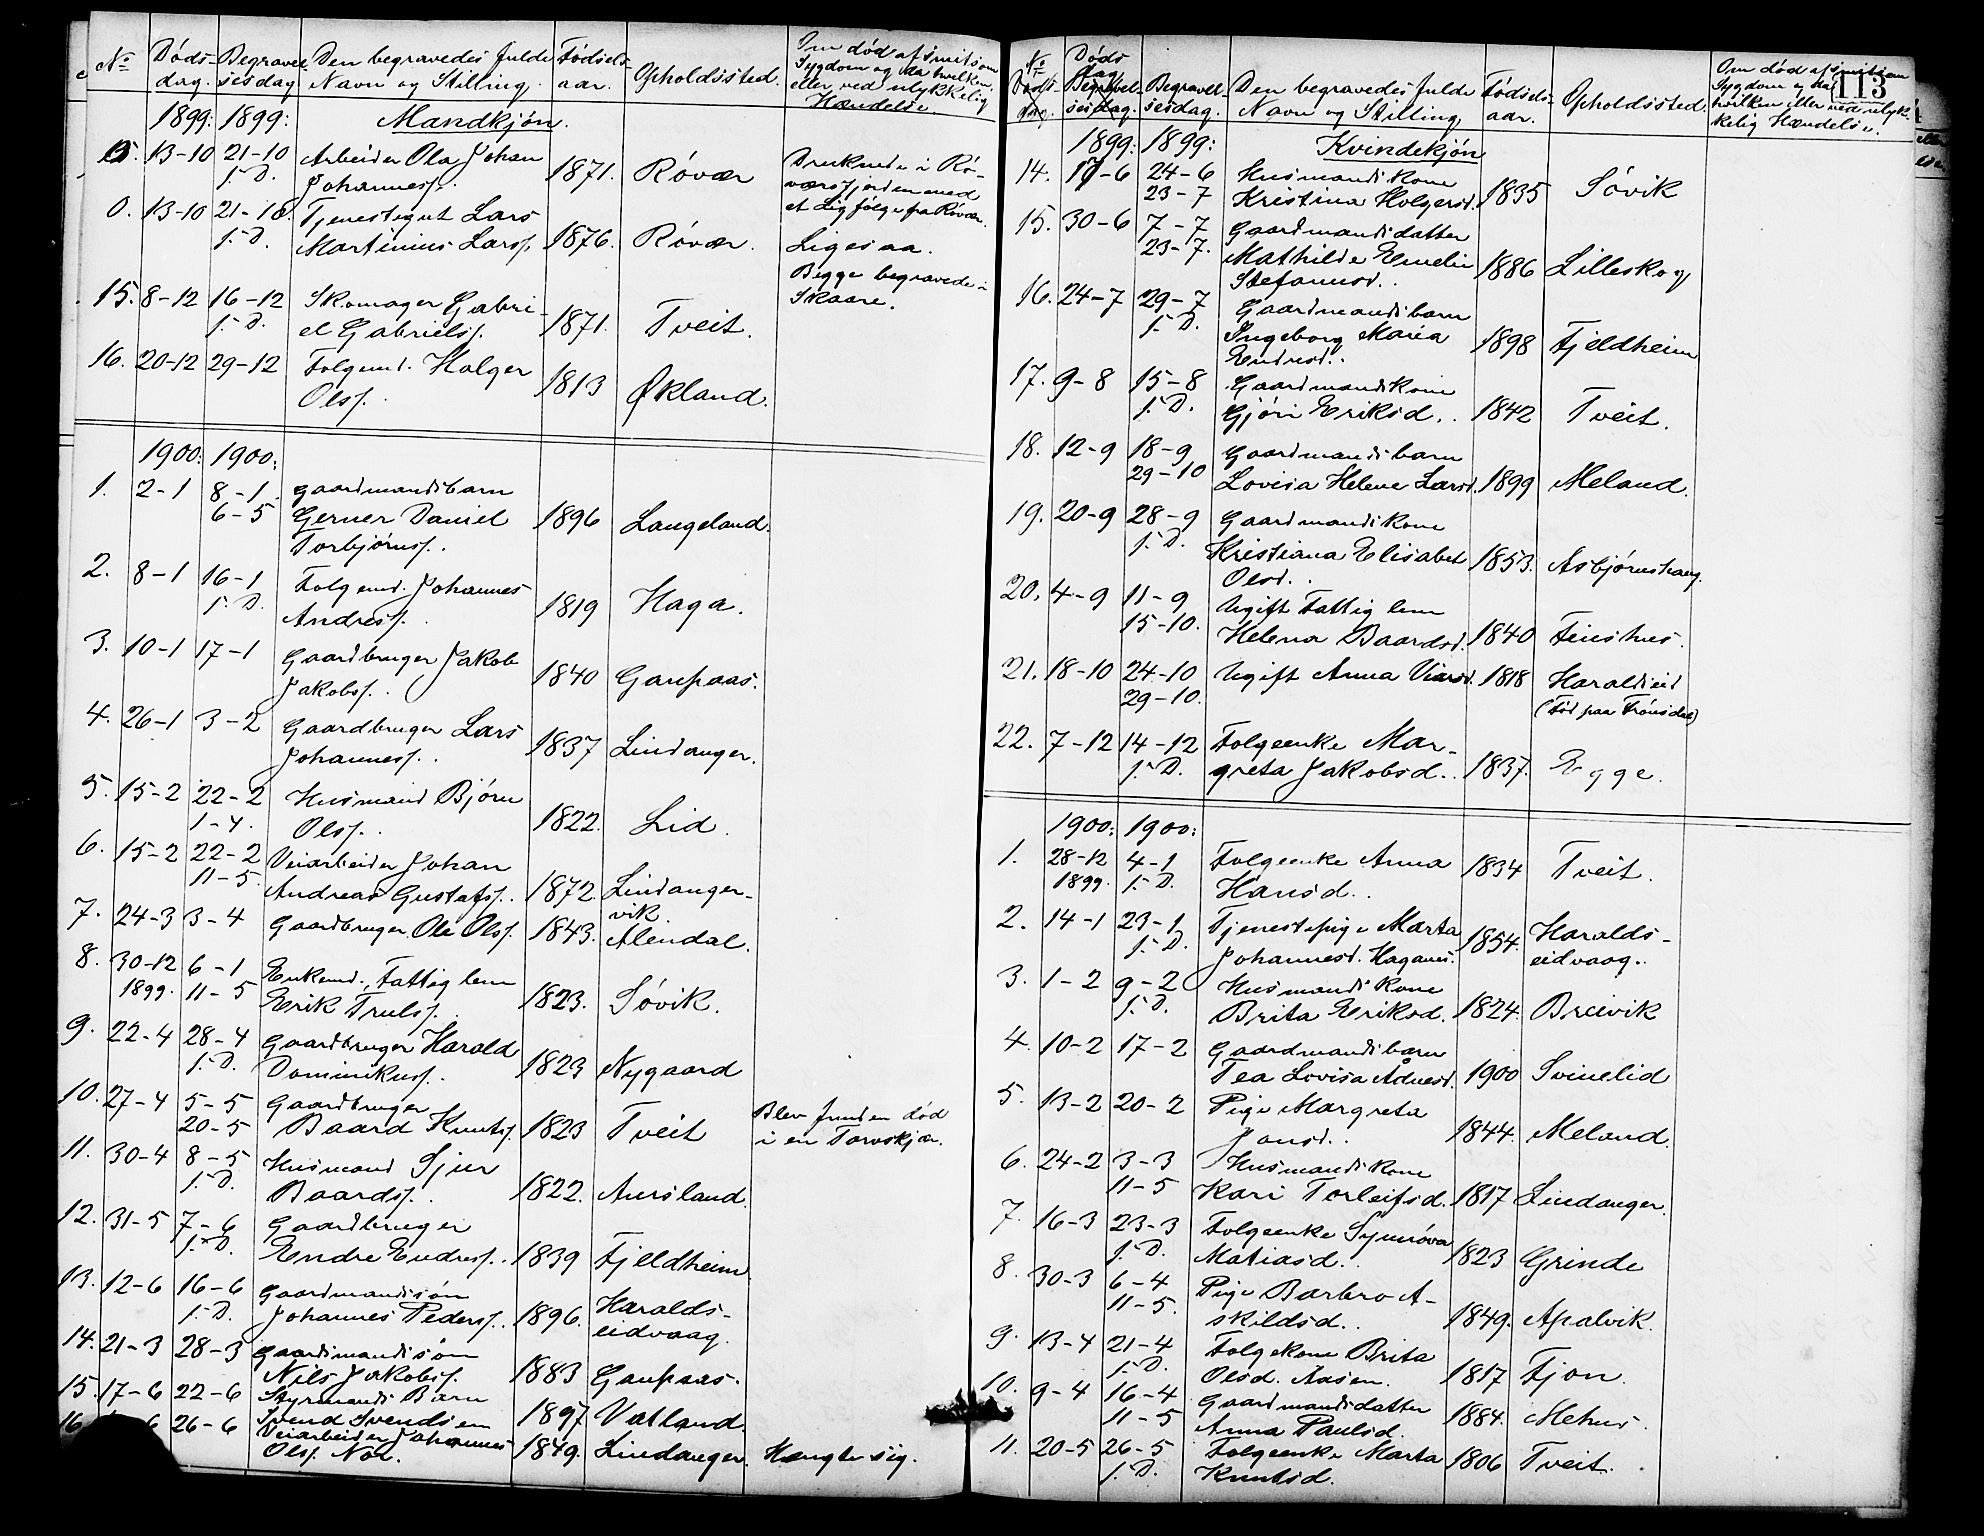 No Døds- Begravel- Den begravedes fulde Fødsels- Opholdssted. Om død af smitsom
dag. sesdag Navn og Stilling, aar. Sygdom og da hvilken,
eller ved ulykkelig
Hændelse.
1899: 1899: Mandkjøn.
13-10 21-10 Arbeider Ola Johan 1871. Røvær Druknede i Rø-
j. D. Johannesf. værsfjorden med
et Ligfølge fra Røvær.
0. 13-10 21-10. Tjenestegut Lars
j. D. Martinius Larsf. 1876. Røvær. Ligesaa.
Begge begravede i
Skaare.
15. 8-12 16-12 Skomager Gabri-
j. D. el Gabrielsf. 1871. Tveit.
16. 20-12 29-12 Folgemd. Holger 1813 Økland.
Olsf.
1900: 1900:
1. 2-1 8-1 Gaardmandsbarn
6-5 Gerner Daniel 1896 Langeland.
Torbjørnsf.
2. 8-1 16-1 Folgemd. Johannes
j. D. Andresf. 1819 Haga.
3. 10-1 17-1 Gaardbruger Jakob
Jakobsf. 1840 Gaupaas.
4. 26-1 3-2 Gaardbruger Lars
Johannesf. 1837 Lindanger.
5. 15-2 22-2 Husmand Bjørn
1-4. Olsf. 1822. Lid.
6. 15-2 22-2 Veiarbeider Johan
11-5. Andreas Gustafsf. 1872. Lindanger-
vik.
7. 24-3 3-4 Gaardbruger Ole Olsf. 1843. Alendal.
8. 30-12 6-1 Enkemd., Fattiglem
1899. 11-5 Erik Trulsf. 1823. Søvik.
9. 22-4 28-4 Gaardbruger Harald
j. D. Dominikusf. 1823 Nygaard
10. 27-4 5-5 Gaardbruger Blev funden død
20-5 Baard Knutsf. 1823 Tveit i en Torvskjær.
11. 30-4 8-5 Husmand Sjur
j. D. Baardsf. 1822. Aursland.
12. 31-5 7-6 Gaardbruger
j. D. Endre Endresf. 1839 Fjeldheim.
13. 12-6 16-6 Gaardmandssøn
j. D. Johannes Pedersf. 1896. Haralds-
eidvaag.
14. 21-3 28-3 Gaardmandssøn
Nils Jakobsf. 1883 Gaupaas.
15. 17-6 22-6 Styrmands Barn
Svend Svendsen 1897 Vatland.
16 6 26-6 Veiarbeider Johannes
Olsf. Nor. 1849. Lindanger. Hængte sig.
113
No Døds Begravel- Den begravedes fulde Fødsels- Opholdssted. Om død af smitsom
dag sesdag. Navn og Stilling, aar. Sygdom og da
hvilken eller ved ulyk-
kelig Hændelse.
1899: 1899: Kvindekjøn
14. 17-6 24-6 Husmandskone
23-7 Kristina Holgersd. 1835 Søvik
15. 30-6 7-7 Gaardmandsdatter
23-7. Mathilde Emelie 1886 Lilleskog
Stefansd.
16. 24-7 29-7 Gaardmandsbarn
j. D. Ingeborg Maria 1898 Fjeldheim
Endresd.
17. 9-8 15-8 Gaardmandskone
j. D. Gjøri Eriksd. 1842 Tveit.
18. 12-9 18-9 Gaardmandsbarn
29-10 Lovisa Helene Larsd. 1899 Meland.
19. 20-9 28-9 Gaardmandskone
j. D. Kristiana Elisabet 1853. Asbjørnshaug.
Olsd.
20. 4-9 11-9 Ugift Fattiglem
15-10. Helena Baardsd. 1840 Feushus.
21. 18-10 24-10 Ugift Anna 1818 Haraldseid
29-10. (Fød paa Frønsdal)
22. 7-12 14-12 Folgeenke Mar-
j. D. greta Jakobsd. 1837. Egge.
1900: 1900:
1. 28-12 4-1 Folgeenke Anna 1834 Tveit.
1899. j. D. Hansd.
2. 14-1 23-1 Tjenestepige Marta 1854. Haralds-
j. D. Johannesd. Haganes. eidvaag.
3. 1-2 9-2 Husmandskone
j. D. Brita Eriksd. 1824. Breivik
4. 10-2 17-2 Gaardmandsbarn
Tea Lovisa Adnesd. 1900 Svinelid
5. 13-2 20-2 Pige Margreta
Jonsd. 1844. Meland.
6. 24-2 3-3 Husmandskone
11-5 Kari Torleifsd. 1817 Lindanger.
7. 16-3 23-3 Folgeenke Synnøva
j. D. Matiasd. 1823 Grinde
8. 30-3 6-4 Pige Barbro A-
11-5. skildsd. 1849. Apalvik.
9. 13-4 21-4 Folgekone Brita
j. D. Olsd. Aasen. 1817 Fjon.
10. 9-4 16-4 Gaardmandsdatter
11-5 Anna Paulsd. 1884. Mehus.
11. 20-5 26-5 Folgeenke Marta 1806 Tveit.
j. D. Knutsd.